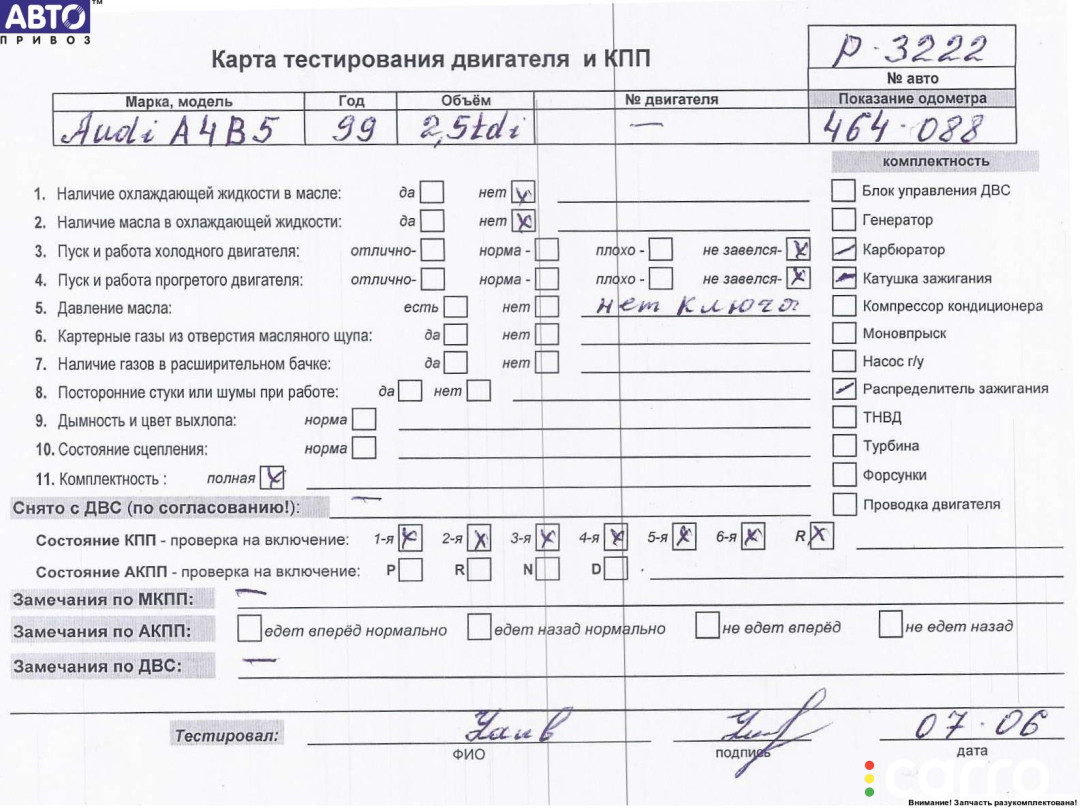 АВТО ™
ПРИВОЗ
Карта тестирования двигателя и КПП
Р-3222
№ авто
Марка, модель Год Объём № двигателя Показание одометра
Audi A4B5 99 2,5tdi — 464.088
комплектность
1. Наличие охлаждающей жидкости в масле: да нет
Блок управления ДВС
2. Наличие масла в охлаждающей жидкости: да нет
Генератор
3. Пуск и работа холодного двигателя: отлично- норма - плохо - не завелся-
Карбюратор
4. Пуск и работа прогретого двигателя: отлично- норма - плохо - не завелся-
Катушка зажигания
5. Давление масла: есть нет нет ключа
Компрессор кондиционера
6. Картерные газы из отверстия масляного щупа: да нет
Моновпрыск
7. Наличие газов в расширительном бачке: да нет
Насос г/у
8. Посторонние стуки или шумы при работе: да нет
Распределитель зажигания
9. Дымность и цвет выхлопа: норма
ТНВД
10. Состояние сцепления: норма
Турбина
11. Комплектность : полная
Форсунки
Снято с ДВС (по согласованию!): —
Проводка двигателя
Состояние КПП - проверка на включение: 1-я 2-я 3-я 4-я 5-я 6-я R
Состояние АКПП - проверка на включение: P R N D
Замечания по МКПП: —
Замечания по АКПП: едет вперёд нормально едет назад нормально не едет вперёд не едет назад
Замечания по ДВС: —
Тестировал: 07.06
ФИО подпись дата
carro
Внимание! Запчасть разукомплектована!